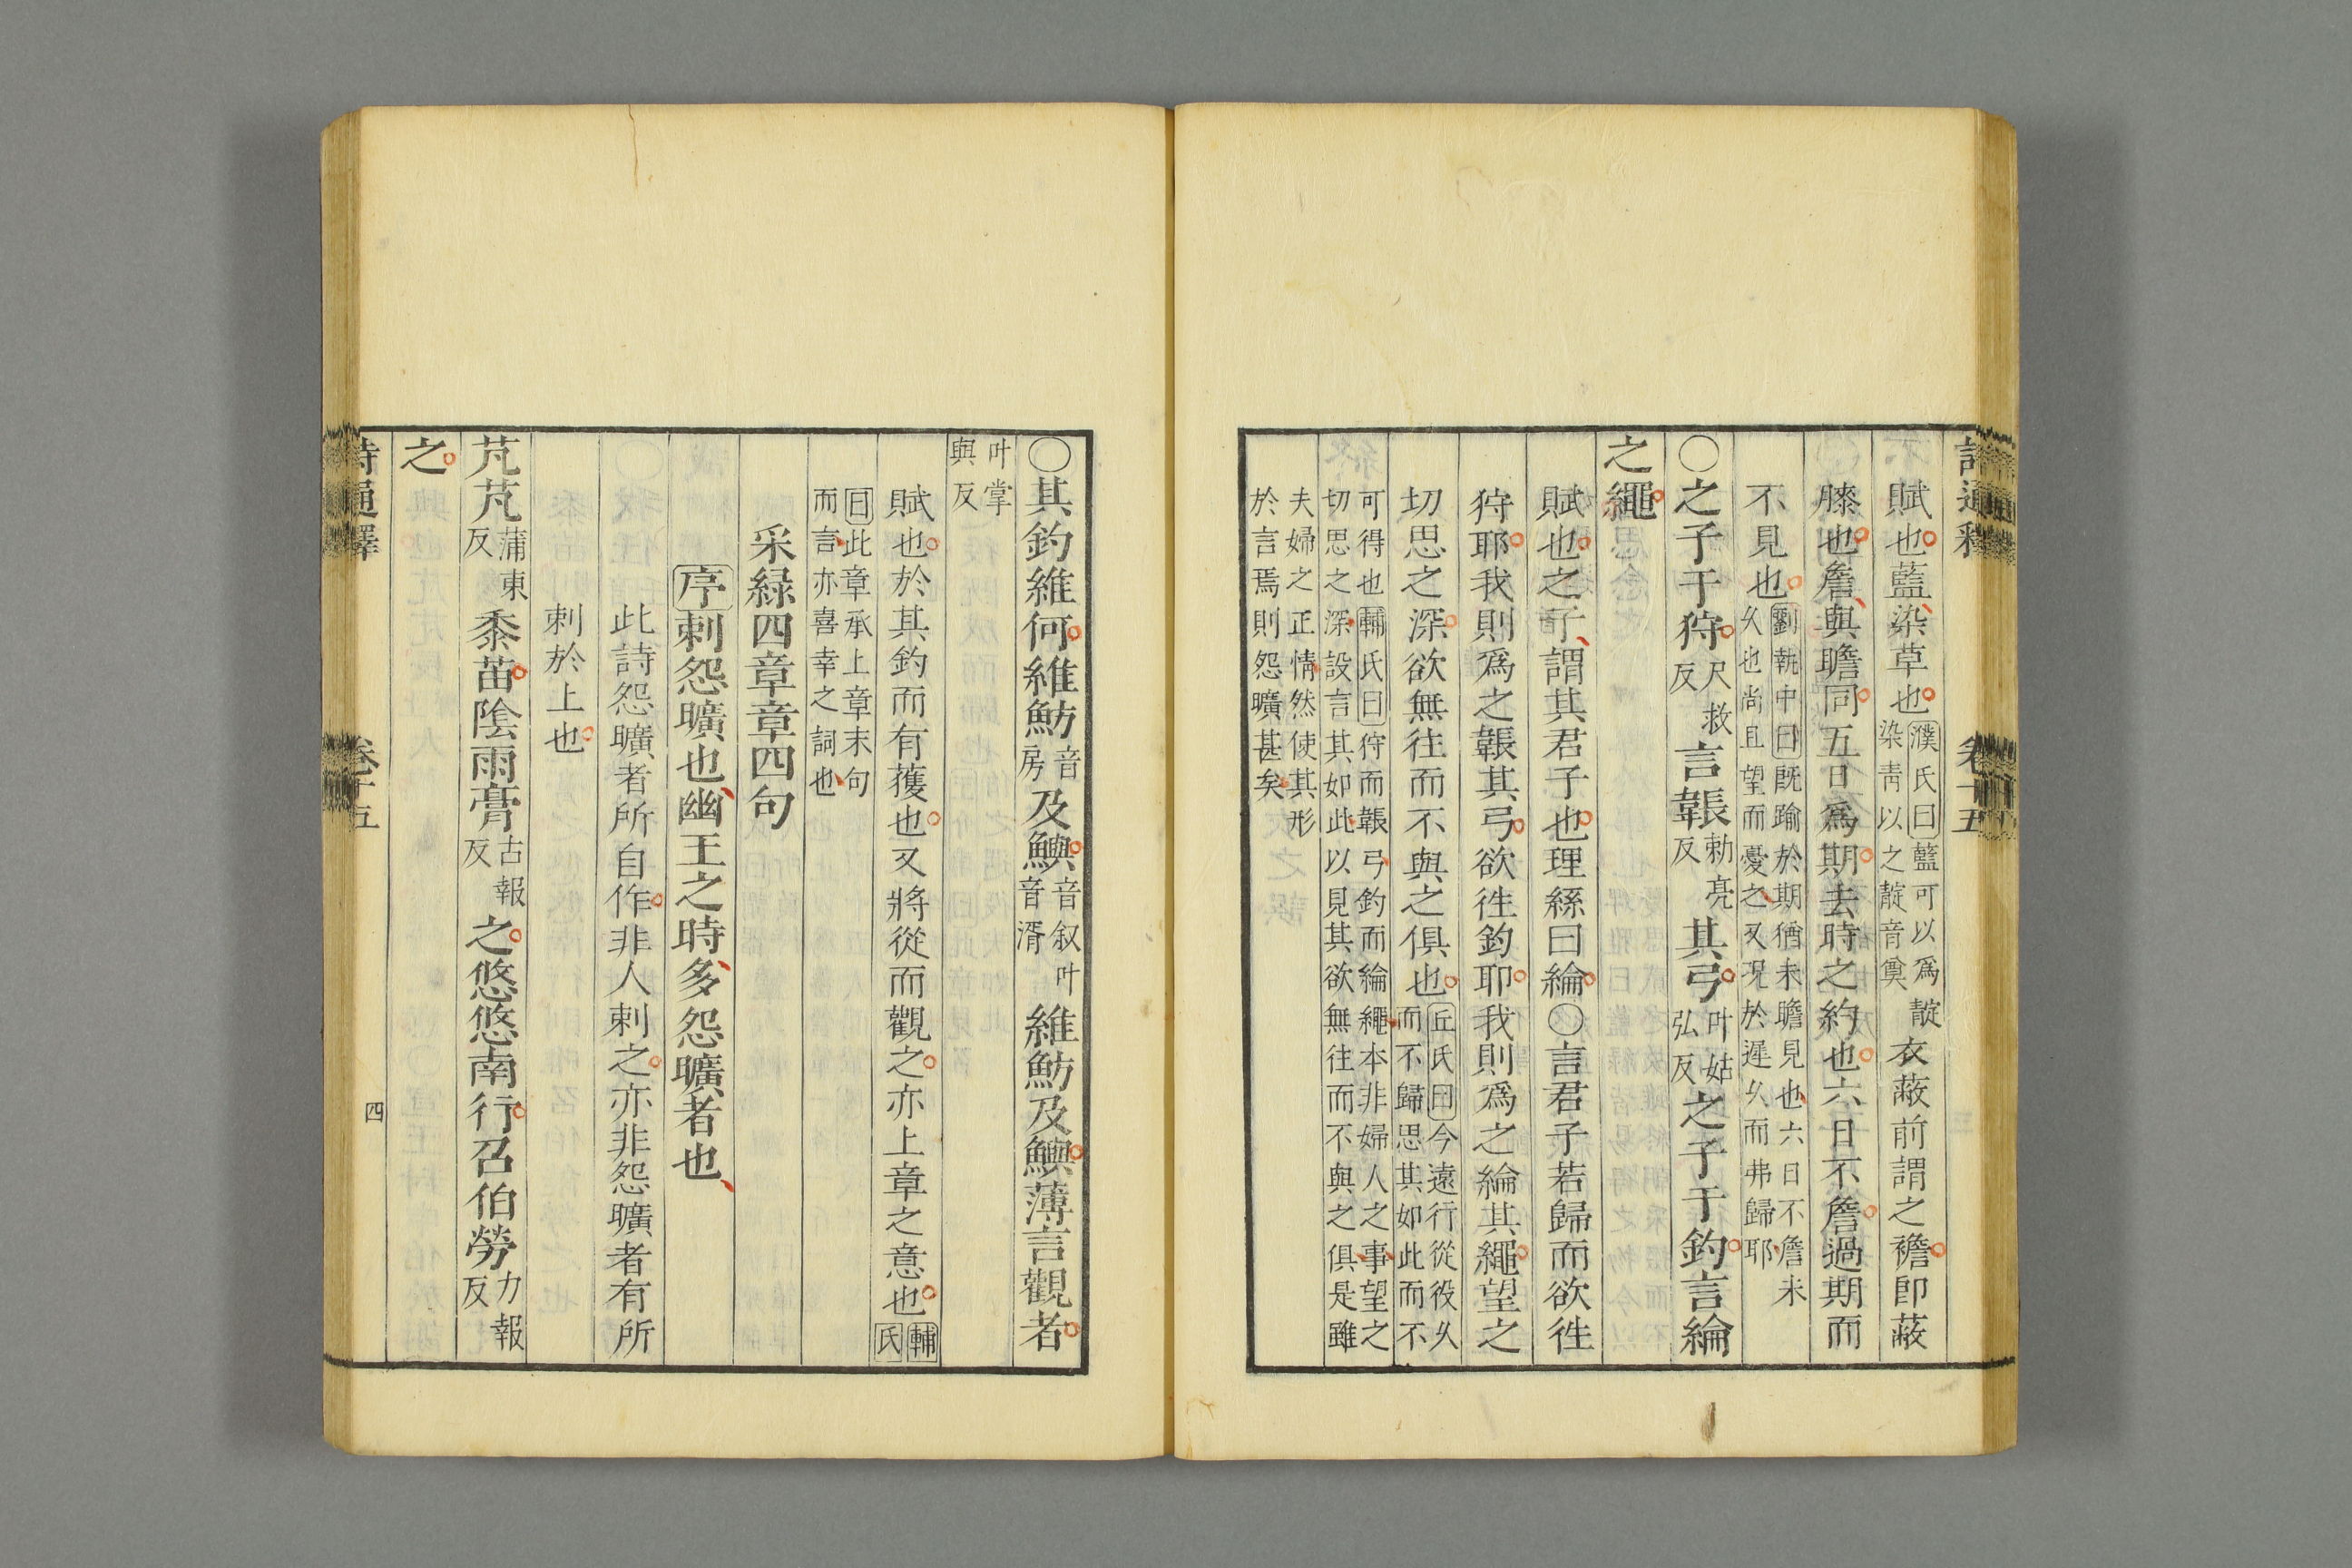 賦也藍染草也濮氏曰藍可以爲靛染靑以之靛音奠衣蔽前謂之襜卽蔽
膝也詹與瞻同五日爲期去時之約也六日不詹過期而
不見也劉執中曰旣踰於期猶未瞻見也六日不詹未久也尙且望而憂之又况於遲久而弗歸耶
○之子于狩尺救反言韔勅亮反其弓叶姑弘反之子于釣言綸
之繩
賦也之子謂其君子也理絲曰綸○言君子若歸而欲徃
狩耶我則爲之韔其弓欲徃釣耶我則爲之綸其繩望之
切思之深欲無往而不與之俱也丘氏曰今遠行從役久而不歸思其如此而不
可得也輔氏曰狩而韔弓釣而綸繩本非婦人之事望之切思之深設言其如此以見其欲無往而不與之俱是雖
夫婦之正情然使其形於言焉則怨曠甚矣
○其釣維何維魴音房及鱮音叙叶音湑維魴及鱮薄言觀者
叶掌與反
賦也於其釣而有獲也又將從而觀之亦上章之意也輔氏
曰此章承上章末句而言亦喜幸之詞也
采綠四章章四句
序刺怨曠也幽王之時多怨曠者也
此詩怨曠者所自作非人刺之亦非怨曠者有所
刺於上也
芃芃蒲東反黍苗陰雨膏古報反之悠悠南行召伯勞力報反
之
卷十五
四